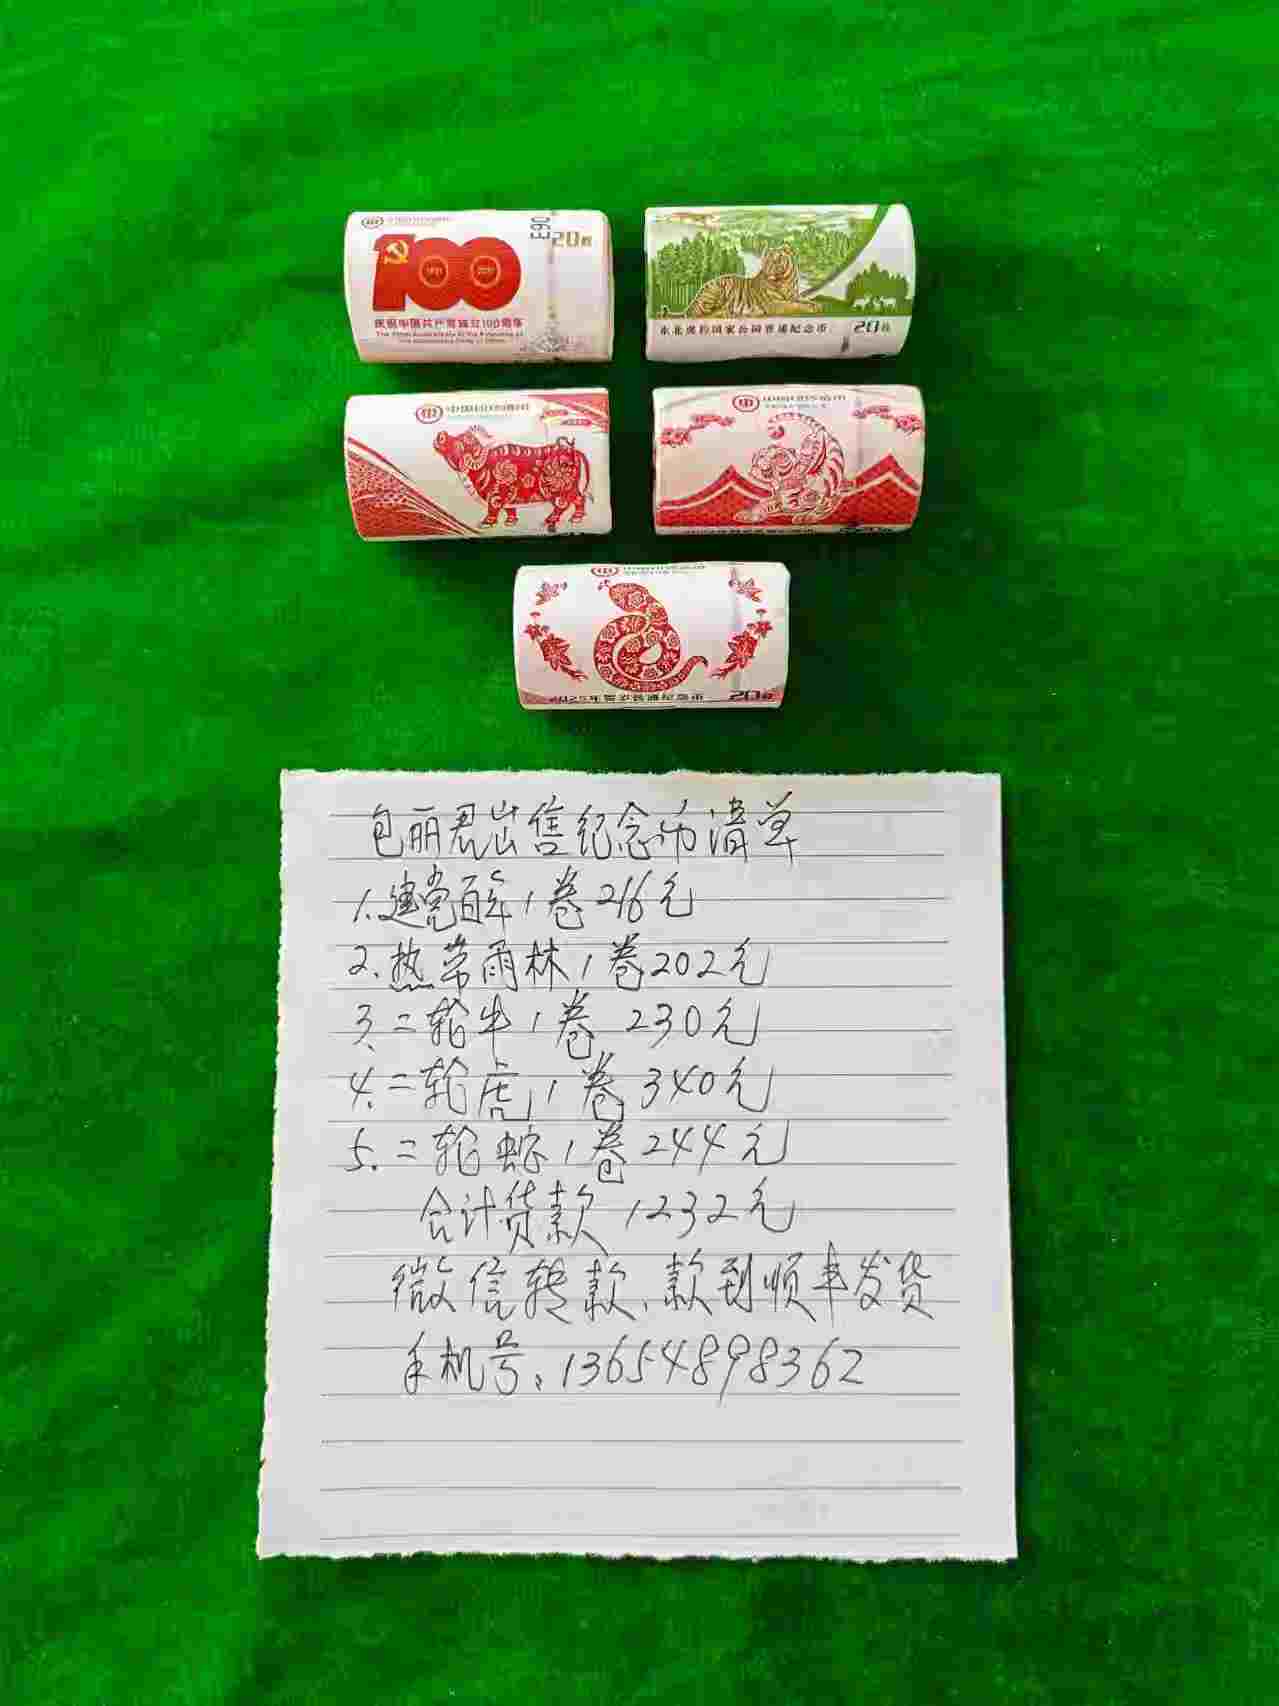 E90
20枚
100
1921
2021
庆祝中国共产党成立100周年
The 100th Anniversary of the Founding of
The Communist Party of China
东北虎豹国家公园普通纪念币
20枚
2025年贺岁普通纪念币
20枚
包丽君出售纪念币清单
1.建党百年1卷216元
2.热带雨林1卷202元
3.二轮牛1卷 230元
4.二轮虎1卷340元
5.二轮蛇1卷244元
合计货款 1232元
微信转款、款到顺丰发货
手机号:13654898362